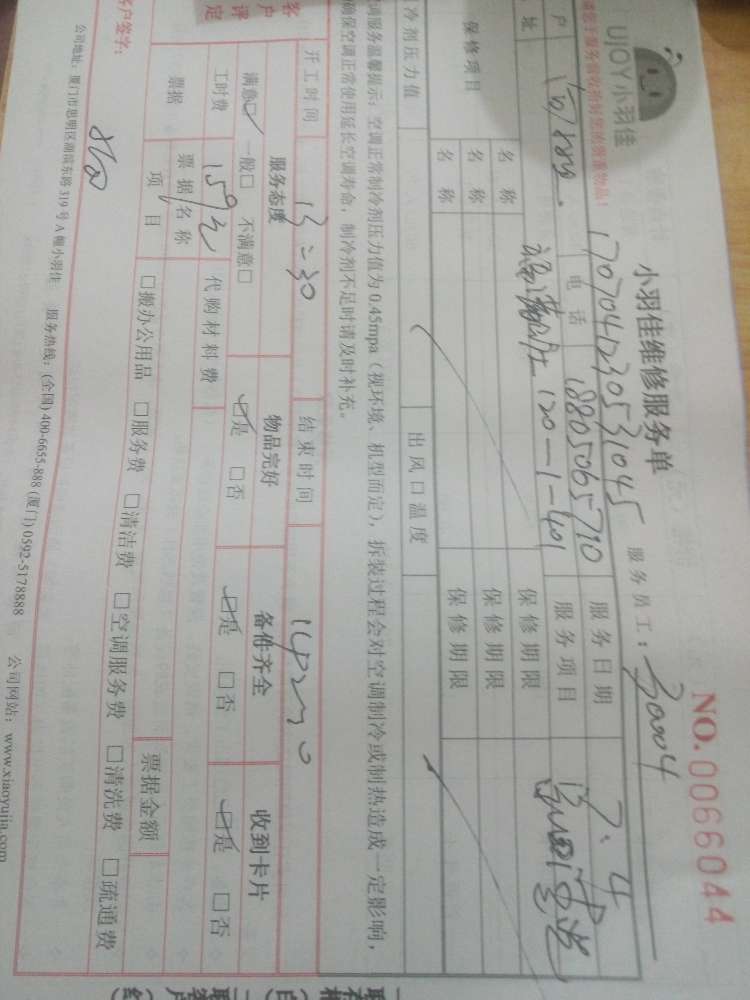 UJOY小羽佳
小羽佳维修服务单
NO.0066044
1707041230531045
服务员工：30004
户
电话
18805065710
服务日期
7.4
址
120-1-401
服务项目
保修项目
名称
保修期限
名称
保修期限
名称
保修期限
冷剂压力值
出风口温度
调服务温馨提示：空调正常制冷剂压力值为0.45mpa（视环境、机型而定），拆装过程会对空调制冷或制热造成一定影响，
确保空调正常使用延长空调寿命，制冷剂不足时请及时补充。
开工时间
13:30
结束时间
客户评定
服务态度
物品完好
备件齐全
收到卡片
满意☑ 一般□ 不满意□
☑是 □否
☑是 □否
☑是 □否
工时费
159元
代购材料费
票据
票据名称
票据金额
项目
□搬办公用品 □服务费 □清洁费 □空调服务费 □清洗费 □疏通费
客户签字：
公司地址：厦门市思明区湖滨东路319号A幢小羽佳 服务热线：(全国)400-6655-888 (厦门)0592-5178888 公司网站：www.xiaoyujia.com